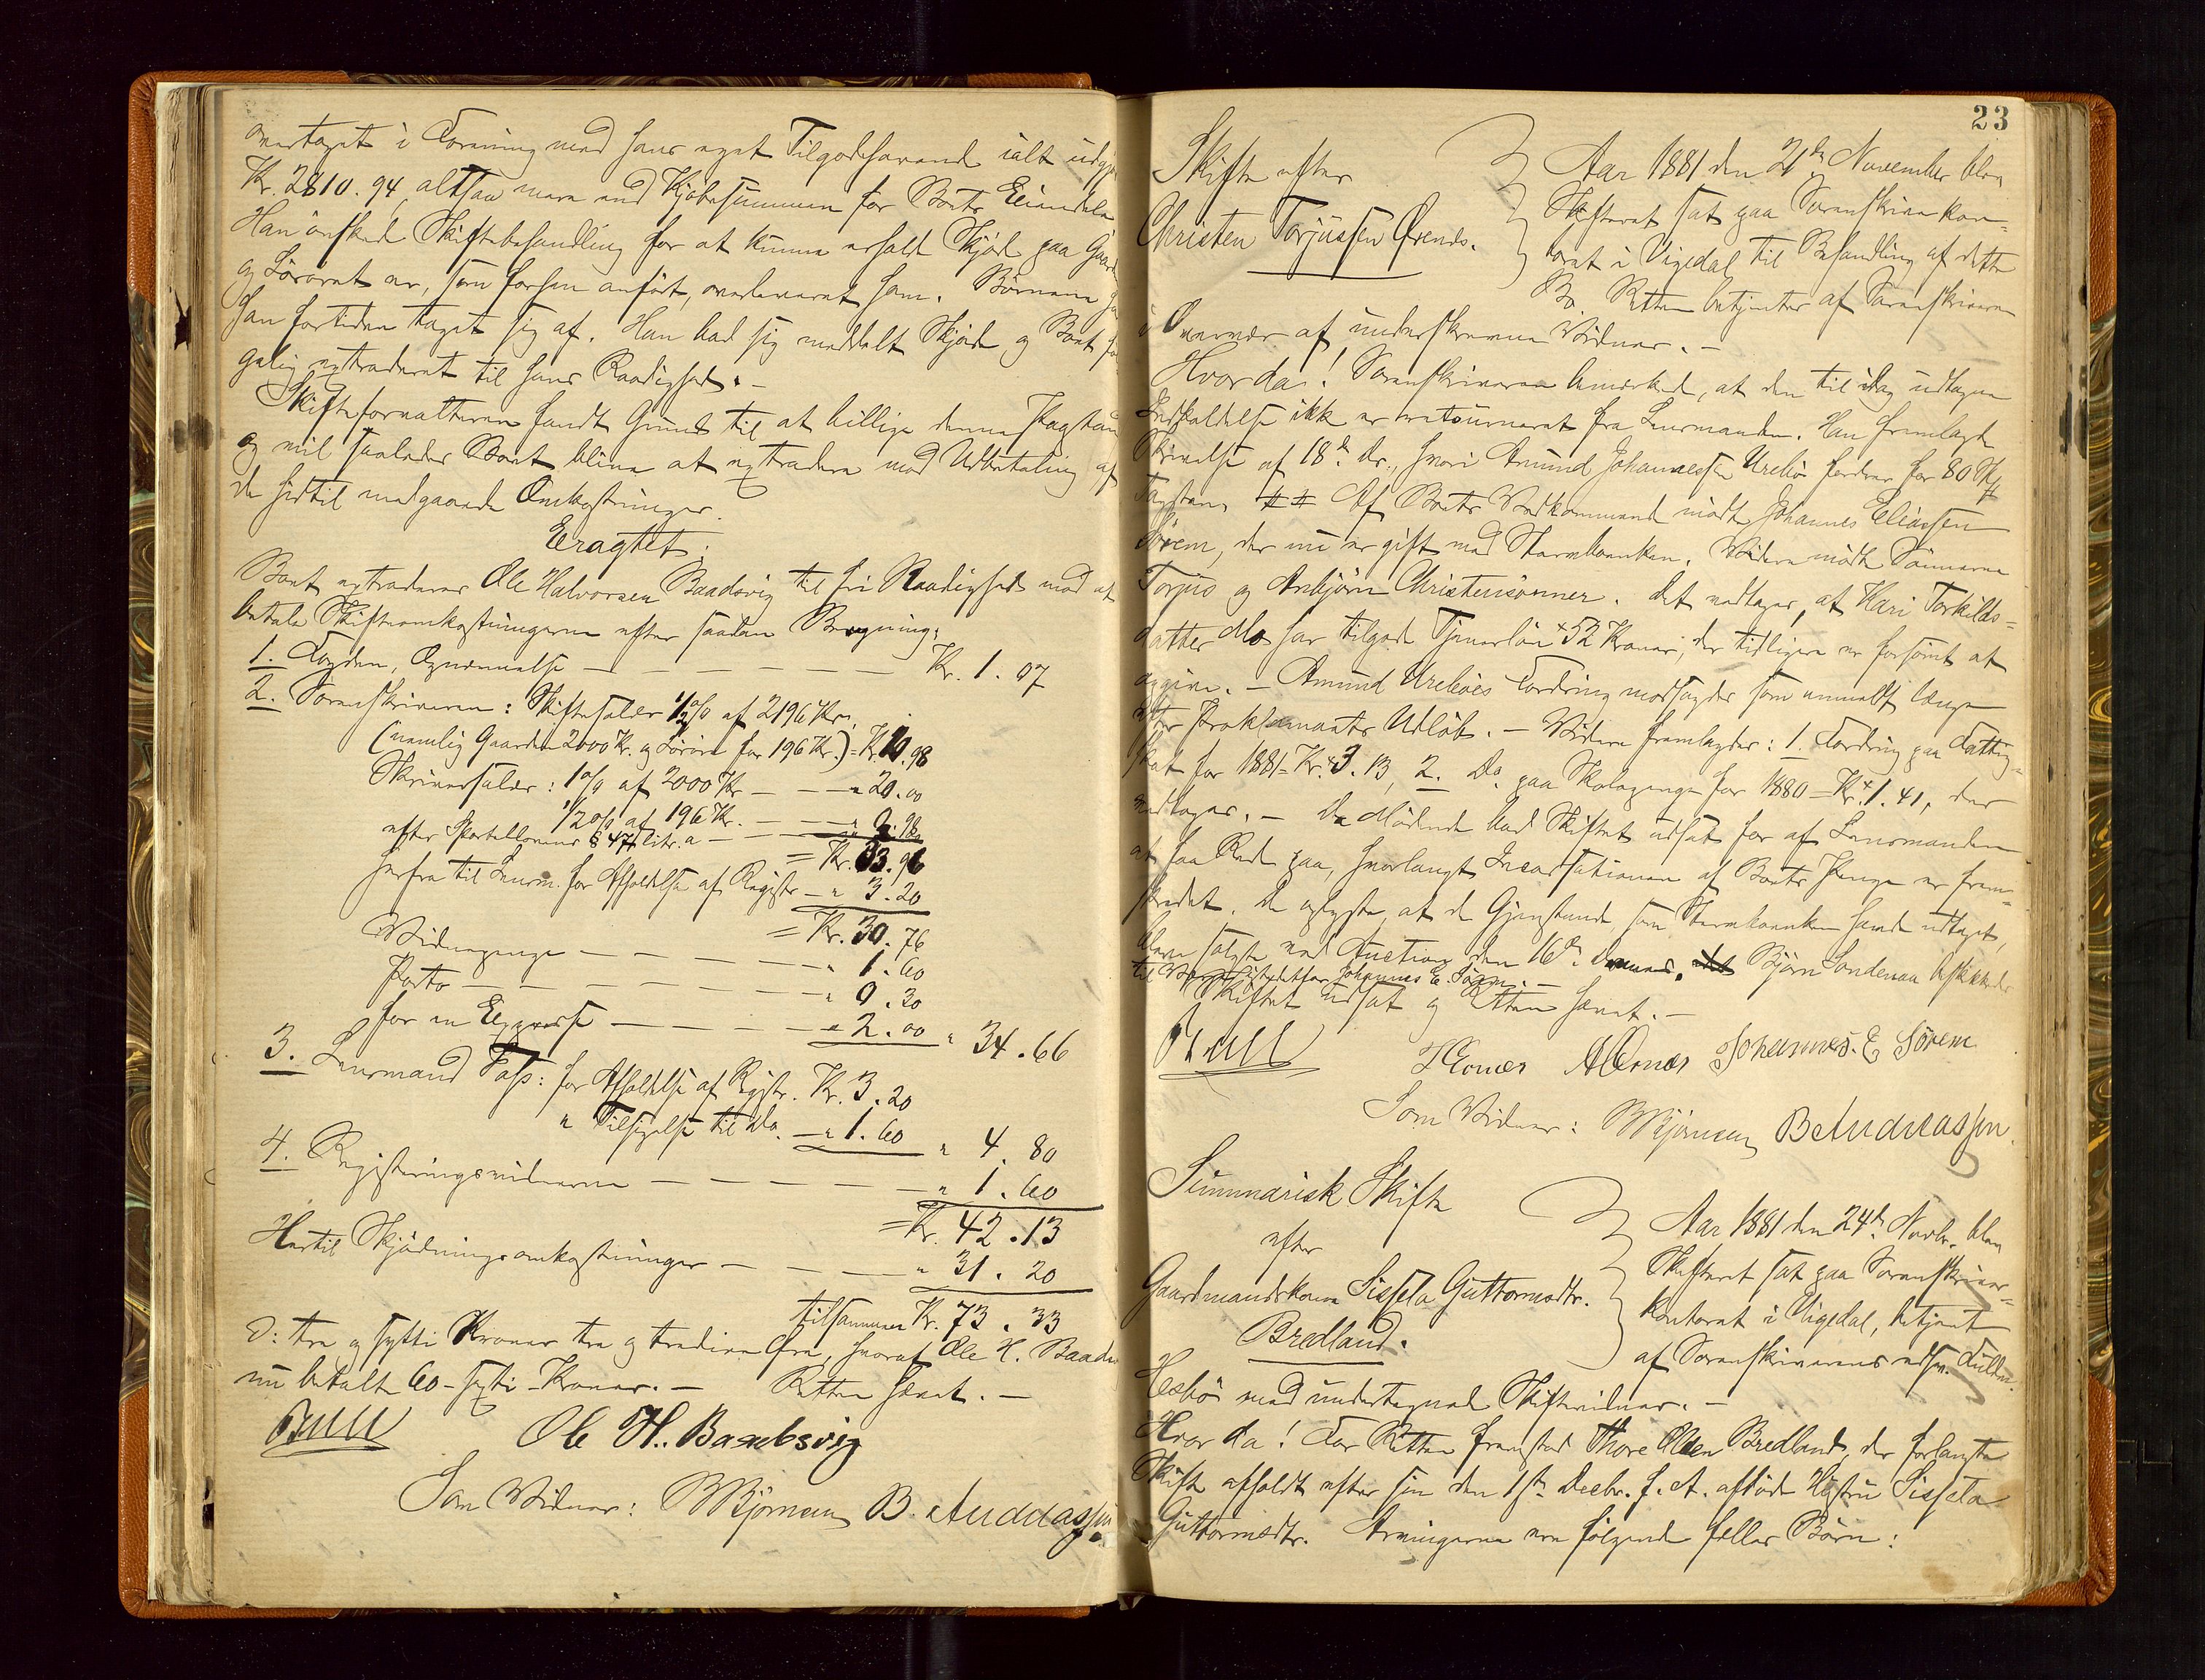 overtaget i Forening med hans eget Tilgodehavende ialt udgjør
Kr. 2810.94, altsaa mere end Kjøbesummen for Boets Eiendele
Han ønskede Skiftebehandling for at kunne erholde Skjøde paa Gaarden
og Løsøret er, som forhen anført, overleveret ham. Børnene har
han fortiden taget sig af. Han bad sig meddelt Skjøde og Boet
extraderet til hans Raadighed. -
Skifteforvalteren fandt Grund til at billige denne Paastand
og vil saaledes Boet blive at extradere mod Udbetaling af
de hidtil medgaaede Omkostninger.
Eragtet:
Boet extraderes Ole Halvorsen Baadsvig til fri Raadighed mod at
betale Skifteomkostningerne efter saadan Beregning:
1. Fogden, Opnævnelse — — — — Kr. 1.07
2. Sorenskriveren: Skiftesalær ½% af 2196 Kr.,
(nemlig Gaarden 2000 Kr. og Løsøre for 196 Kr.) = Kr. 10.98
Skriversalær: 1% af 2000 Kr — — " 20.00
½% af 196 Kr. — — " 0.98
efter Sportellovens § 47 litr. a — = Kr. 33.96
herfra til Lensm. for Afholdelse af Registr. — " 3.20
= Kr. 30.76
Vidnepenge — — — — " 1.60
Porto — — — — " 0.30
for en Expresse — — — " 2.00 " 34.66
3. Lensmand Fass: for Afholdelse af Registr. Kr. 3.20
" Tilsigelse til do. — " 1.60 " 4.80
4. Registreringsvidnerne — — — — " 1.60
= Kr. 42.13
Hertil Skjødningsomkostninger — — — " 31.20
tilsammen Kr. 73.33
ɔ: tre og sytti Kroner tre og tredive Øre, hvoraf Ole H. Baadsvig
nu betalte 60 - sexti - Kroner. - Retten hævet. -
Bull Ole H. Baadsvig
Som Vidner: MBjörnsen B. Andreassen
23
Skifte efter
Christen Torjussen Ørends.
Aar 1881 den 21de November blev
Skifteret sat paa Sorenskriverkon-
toret i Vigedal til Behandling af dette
Bo. Retten betjentes af Sorenskriveren
i Overvær af underskrevne Vidner. -
Hvorda! Sorenskriveren bemærkede, at den til idag udtagne
Indkaldelse ikke er retourneret fra Lensmanden. Han fremlagde
Skrivelse af 18de ds., hvori Amund Johannessen Urebø fordrer for 80 Stk
Tagsten Af Boets Vedkommende mødte Johannes Eliassen
Sørem, der nu er gift med Stervboenken. Videre mødte Sønnerne
Torjus og Asbjørn Christensønner. Det vedtages, at Kari Torkilds-
datter Mo har tilgode Tjenerløn 52 Kroner, der tidligere er forsømt at
opgive. - Amund Urebøes Fordring modsagdes som anmeldt længe
efter Proklamaets Udløb. - Videre fremlagdes: 1. Fordring paa Fattig-
skat for 1881 - Kr. 3.13, 2. Do. paa Skolepenge for 1880 - Kr. 1.41, der
vedtages. - De Mødende bad Skiftet udsat for af Lensmanden
at faa Rede paa, hvorlangt Incassationen af Boets Penge er frem-
skredet. De oplyste, at de Gjenstande, som Stervboenken havde udtaget,
bleve solgte ved Auction den 16de Bjørn Sandenaa beskikkedes
til istedetfor Johannes E. Sørem. -
Skiftet udsat og Retten hævet. -
Bull Johannes. E Sørem
Som Vidner: MBjörnsen BAndreassen.
Summarisk Skifte
efter
Gaardmandskone Sissela Guttormsdtr.
Bredland.
Aar 1881 den 24de Novbr. blev
Skifteret sat paa Sorenskriver-
kontoret i Vigedal, betjent
af Sorenskriverens edsv. Fuldm.
Hesbø med undertegnede Skiftevidner. -
Hvor da! For Retten fremstod Thore Olsen Bredland, der forlangte
Skifte afholdt efter sin den 1ste Decbr. f. A. afdøde Hustru Sissela
Guttormsdtr. Arvingerne ere følgende fælles Børn: